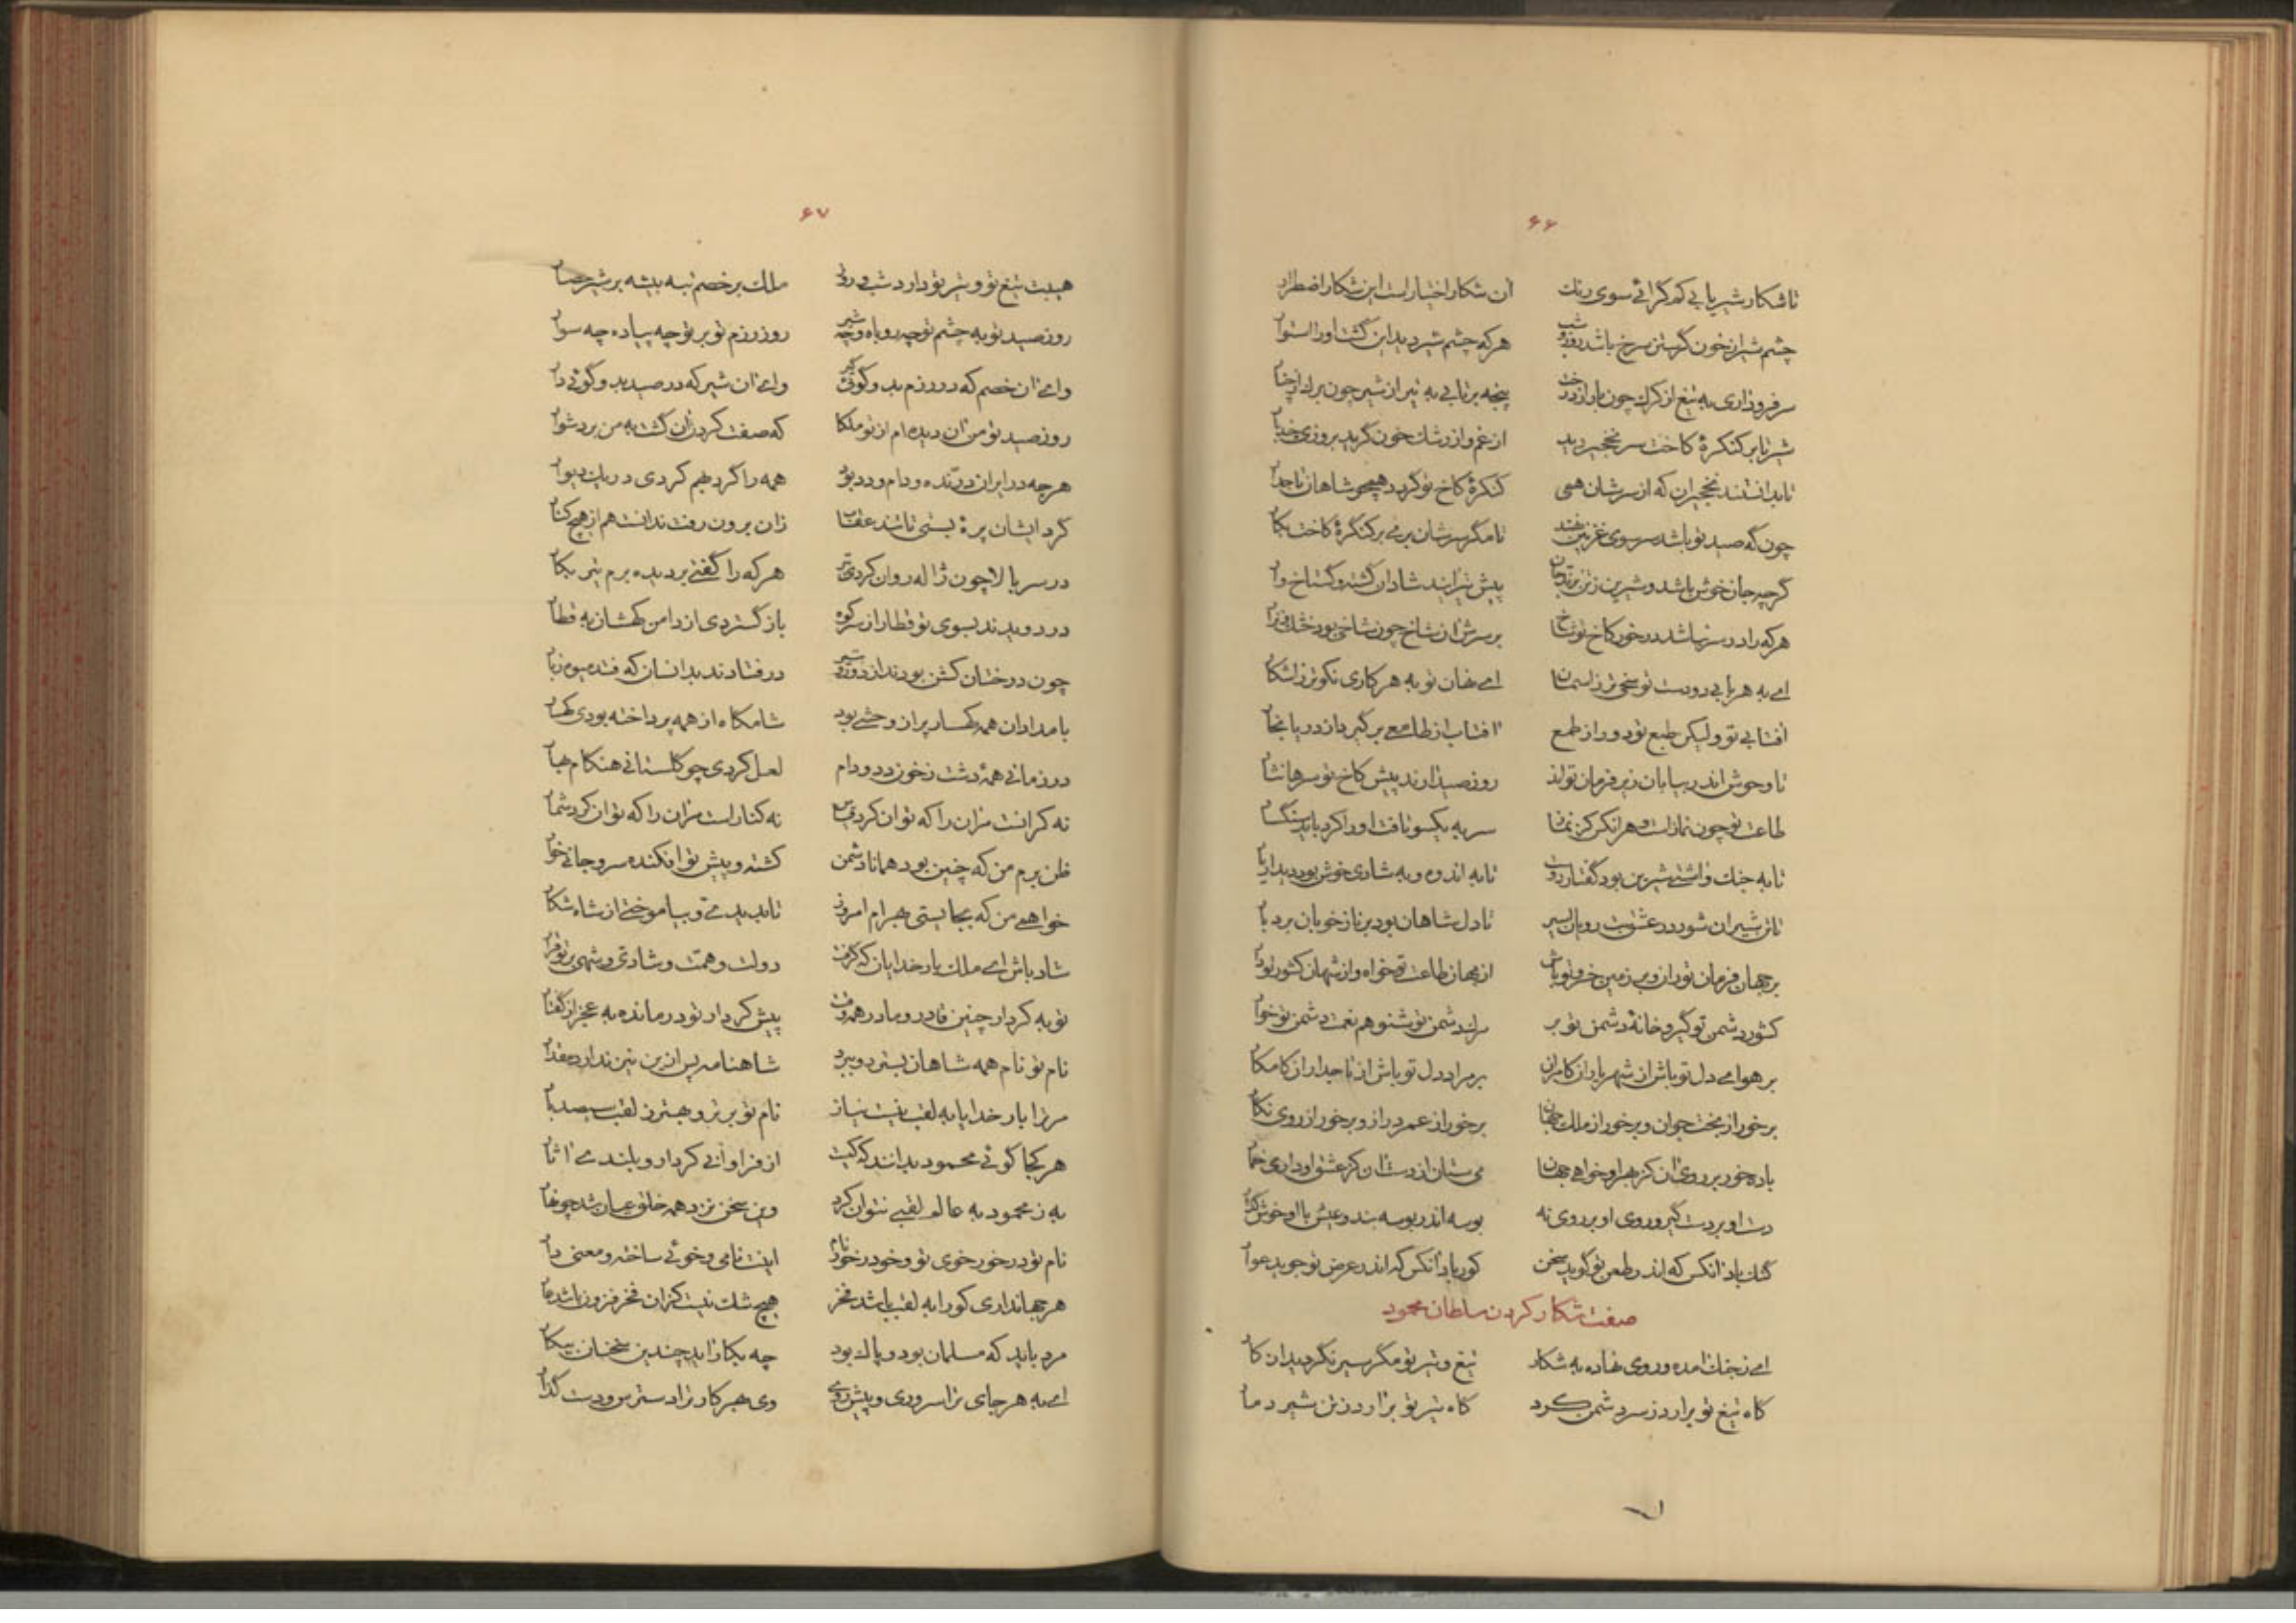 ۶۶
تا شکار شیر یابی کم گرائی سوی رنگ آن شکار اختیار است این شکار اضطرار
چشم شیر از خون گرستن سرخ باشد روز و شب هر که چشم شیر دید این گشت او را استوار
سر فرود آری به تیغ از کرگ چون بار از درخت پنجه برتابی به تیر از شیر چون برگ از چنار
شیر تا بر کنگره کاخت سر نخجیر دید از غم و از رشک خون گرید بروزی چند بار
تا بدانستند نخجیران که از سرشان همی کنگره کاخ تو گردد همچو شاهان تاجدار
چون گه صید تو باشد سر سوی غزنین نهند تا مگر سرشان بری بر کنگره کاخت بکار
گرچه جان خوش باشد و شیرین زتن بر تیر جان پیش تیر آیند شادان گشته و گستاخ وار
هر که را در سر نباشد در خور کاخ تو شاخ بر سرش آن شاخ چون شاخی بود خشک و نزار
ای به هر بابی دو دست تو سخی تر زاسمان ای نهان تو به هر کاری نکوتر زاشکار
افتابی تو ولیکن طبع تو دور از طمع افتاب از طامعی بر گیرد از دریا بخار
تا وحوش اندر بیابان زیر فرمان تواند روز صید آرند پیش کاخ تو سرها نثار
طاعت تو چون نماز است و هر آنکس کز نماز سر به یکسو تافت او را کرد باید سنگسار
تا به جنگ و آشتی شیرین بود گفتار دوست تا به اندوه و به شادی خوش بود دیدار یار
تا تن شیران شود در عشق بت رویان اسیر تا دل شاهان بود بر ناز خوبان بردبار
بر جهان فرمان تو ران و بر زمین خسرو تو باش از مهان طاعت تو خواه و از شهان کشور تو دار
کشور دشمن تو گیر و خانه دشمن تو بر مراد دشمن تو شنو هم نعمت دشمن تو خوار
بر هوای دل تو باش از شهریاران کامران بر مراد دل تو باش از تاجداران کامکار
برخور از بخت جوان و برخور از ملک جهان برخور از عمر دراز و برخور از روی نگار
باده خور بر روی آن کز بهر او خواهی جهان می ستان از دست آن کز عشق او داری خمار
دست او بر دست گیر و روی او بر روی نه بوسه اندر بوسه بند و عیش با او خوش گذار
گنگ باد آنکس که اندر طعن تو گوید سخن کور باد آنکس که اندر عرض تو جوید عوار
صفت شکار کردن سلطان محمود
ای زجنگ آمده و روی نهاده به شکار تیغ و تیر تو مگر سیر نگردید از کار
گاه تیغ تو برآرد ز سر دشمن گرد گاه تیر تو برآرد زتن شیر دمار
۶۷
هیبت تیغ تو و تیر تو دارد شب و روز ملک بر خصم تبه بیشه بر شیر حصار
روز صید تو به چشم تو چه روباه و چه شیر روز رزم تو بر تو چه پیاده چه سوار
وای آن خصم که در رزم بدو گوئی گیر وای آن شیر که در صید بدو گوئی دار
روز صید تو من آن دیده ام از تو ملکا که صفت کردن آن گشت به من بر دشوار
هر چه در ایران درنده و دام و دد بود همه را گرد بهم کردی در یک دیوار
گرد ایشان پره بستی تا شد عقاب زان برون رفت ندانست هم از هیچ کنار
در سر بالا چون ژاله روان کردی تیر هر که را گفتی بر دیده برم تیر بکار
در دویدند بسوی تو قطار از سر کوه باز گستردی از دامن کهشان به قطار
چون درختان گشن بودند از دور و ز تیر در فتادند بدانسان که فتد میوه زبار
بامدادان همه کهسار پر از وحشی بود شامگاه از همه پرداخته بودی کهسار
در زمانی همه دشت زخون دد و دام لعل کردی چو گلستانی هنگام بهار
نه کرانست مر آن را که تو آن کردی نه کنار است مر آن را که تو آن کرد شمار
ظن برم من که چنین بود همانا دشمن کشته و پیش تو افکنده سر و جانی خوار
خواهمی من که بجا یستی بهرام امروز تا بدیدی و بیاموختی از شاه شکار
شاد باش ای ملک بار خدایان که گرفت دولت و همت و شادی و شهی بر تو قرار
تو به کردار چنین قادر و ما در همه وقت پیش کردار تو درمانده به عجز از گفتار
نام تو نام همه شاهان بسترد و ببرد شاهنامه پس ازین نیز ندارد مقدار
مر ترا بار خدایا به لقب نیست نیاز نام تو برتر و بهتر ز لقب سیصد بار
هر کجا گوئی محمود بدانند که کیست از فراوانی کردار و بلندی آثار
به ز محمود به عالم لقبی نتوان کرد وین سخن نزد همه خلق عیان شد چو نهار
نام تو در خور خوی تو و خو در خور نام اینت نامی و خوئی ساخته و معنی دار
هر جهانداری کو را به لقب باشد فخر هیچ شک نیست کز آن فخر فزون باشد عار
مرد باید که مسلمان بود و پاک بود چه بکار آید چندین سخنان بیکار
ای به هر جای ترا سروری و پیش روی وی بهر کار ترا دسترس و دست گذار